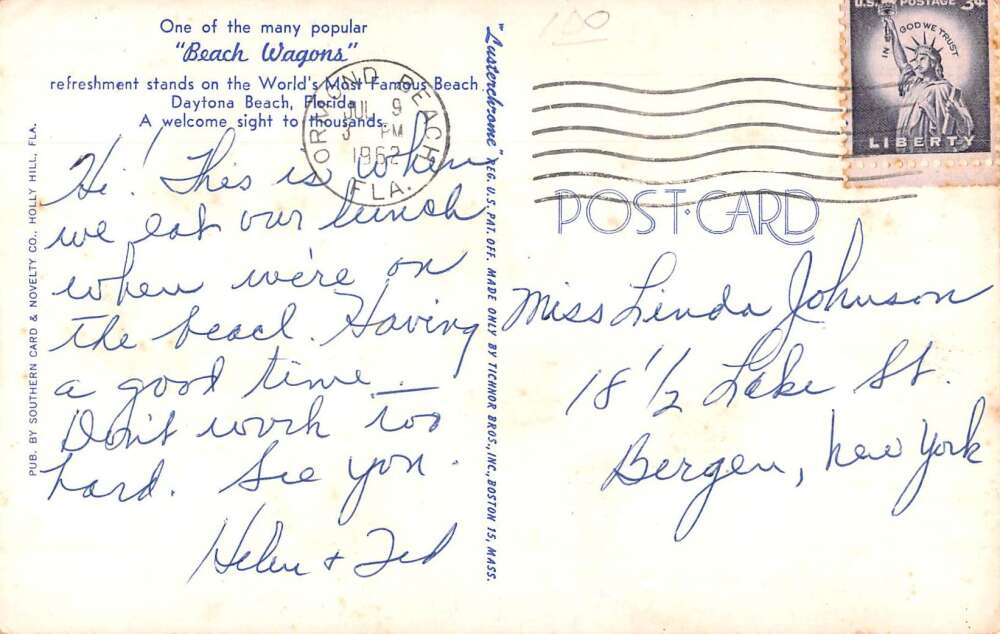 One of the many popular
"Beach Wagons"
refreshment stands on the World's Most Famous Beach
Daytona Beach, Florida
A welcome sight to thousands.
Hi! This is when
we eat our lunch
when we're on
the beach. Having
a good time –
Don't work too
hard. See you.
Helen + Ted
PUB. BY SOUTHERN CARD & NOVELTY CO., HOLLY HILL, FLA.
"Lusterchrome" REG. U.S. PAT. OFF. MADE ONLY BY TICHNOR BROS., INC., BOSTON 15, MASS.
150
ORMOND BEACH
JUL 9
3 PM
1962
FLA.
U.S. POSTAGE 3¢
IN GOD WE TRUST
LIBERTY
POST-CARD
Miss Linda Johnson
18 1/2 Lake St.
Bergen, New York